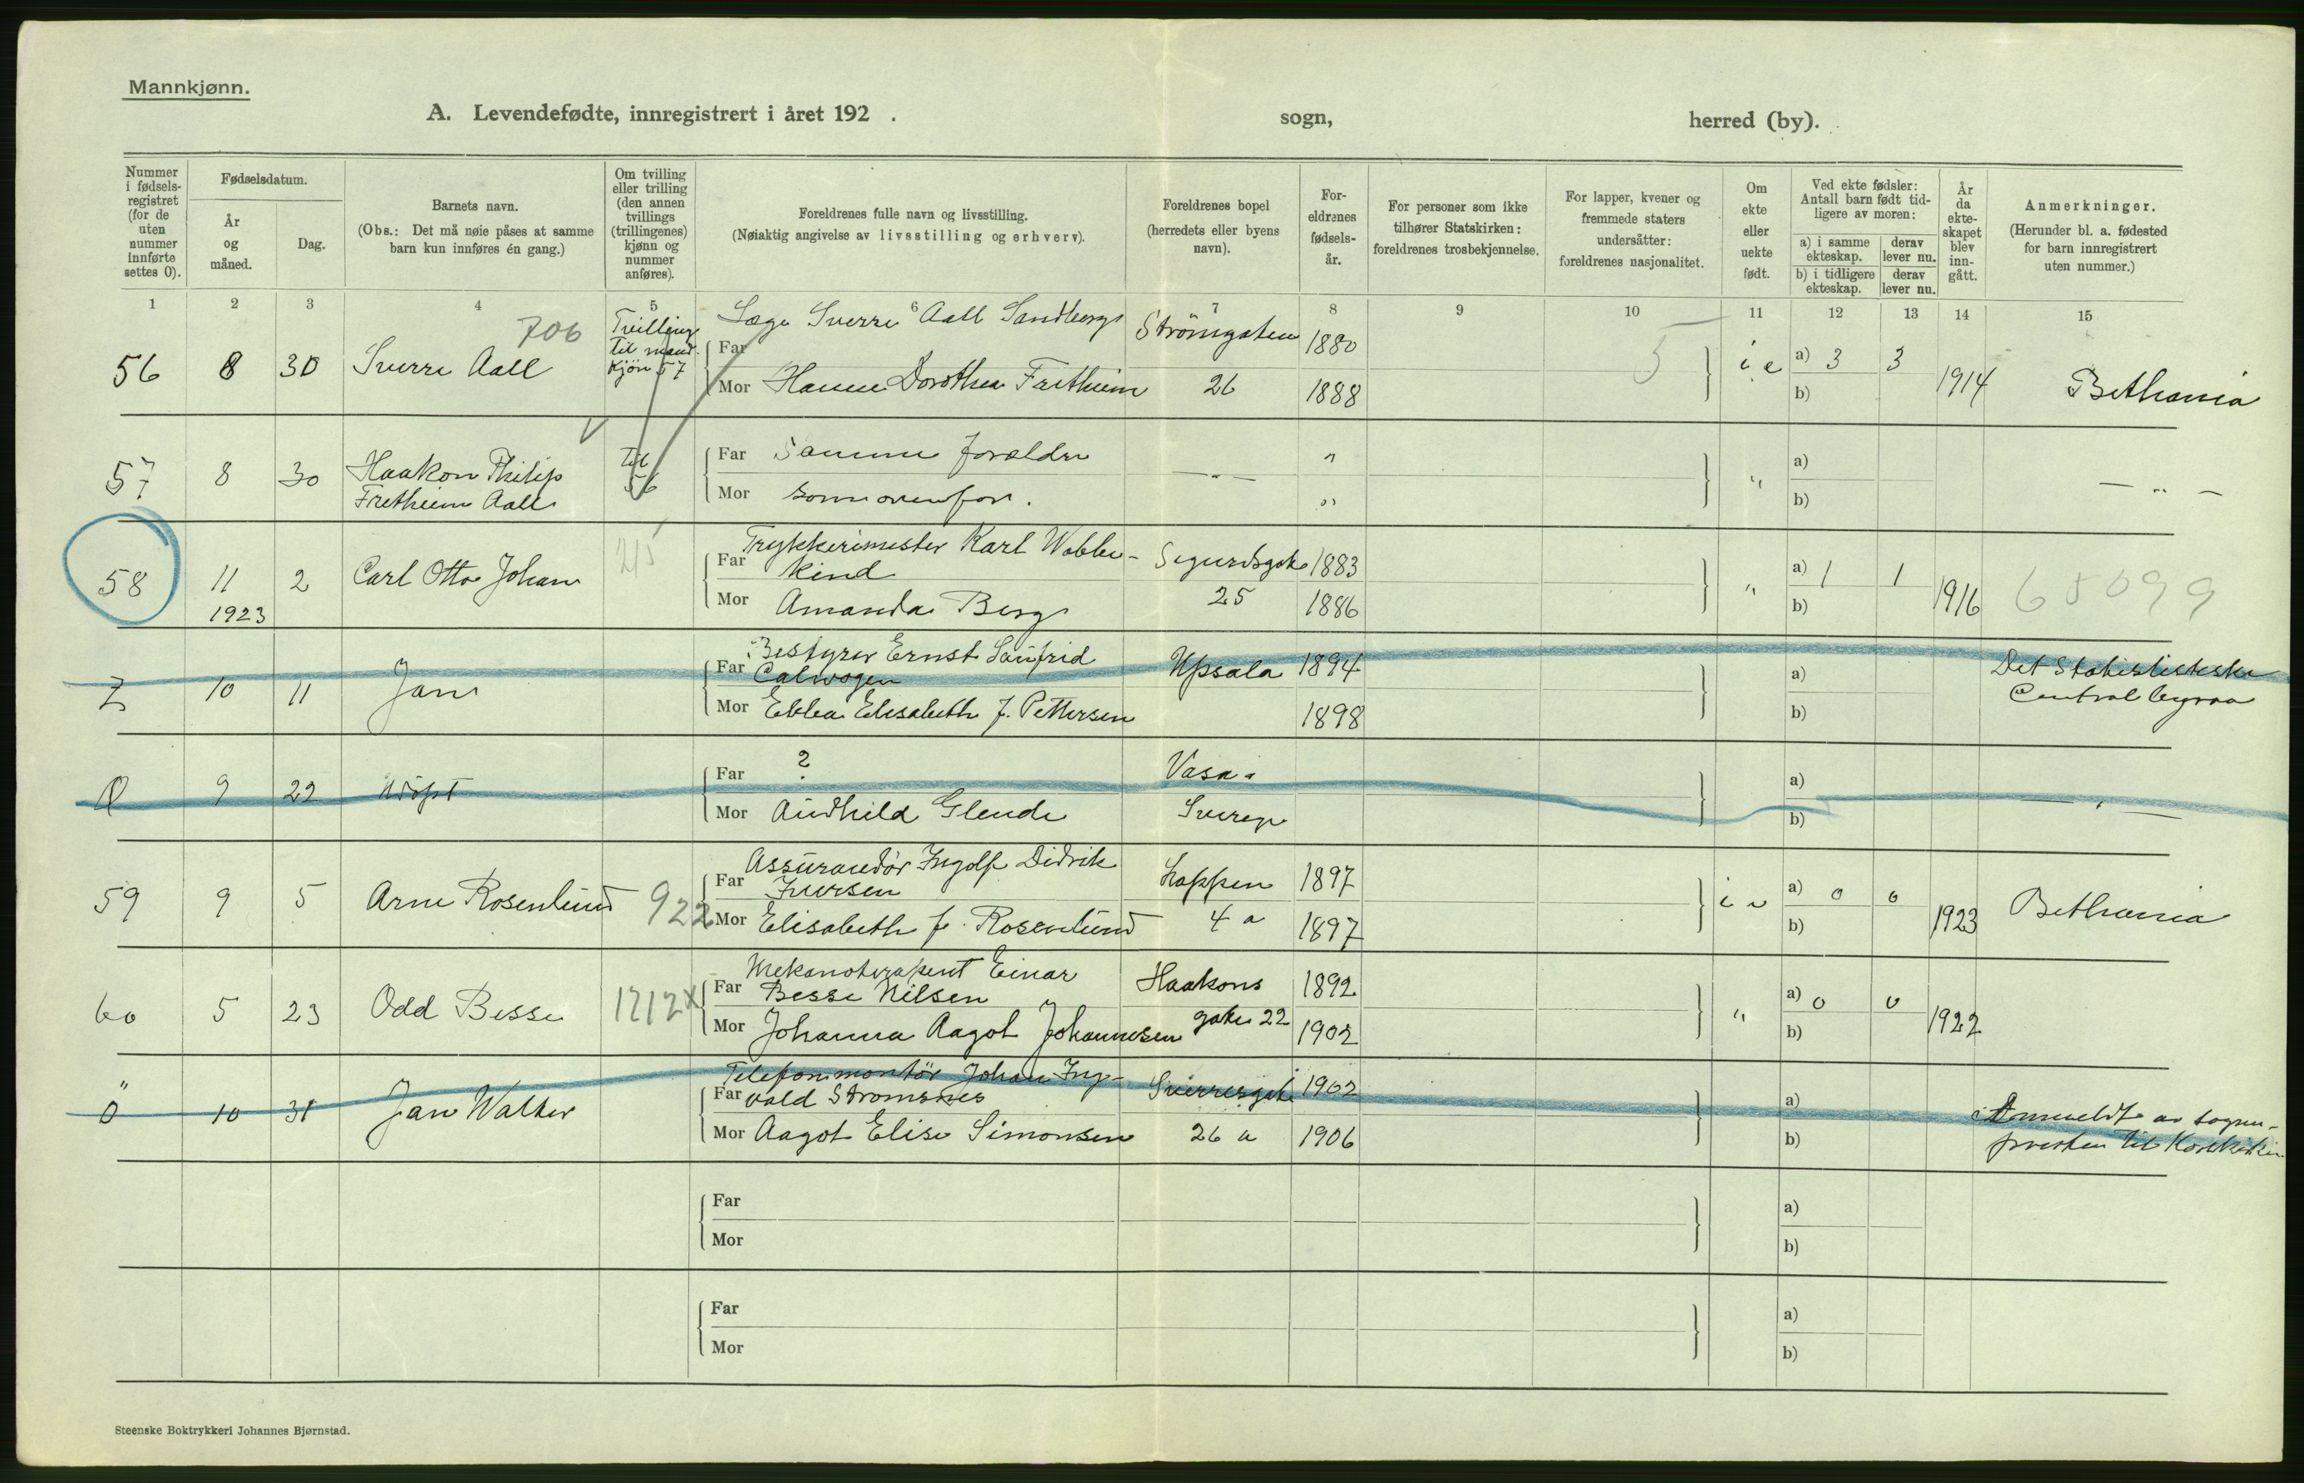 Mannkjønn.
A. Levendefødte, innregistrert i året 192 .
sogn,
herred (by).
Nummer
i fødsels-
registret
(for de
uten
nummer
innførte
settes 0).
Fødselsdatum.
År
og
måned.
Dag.
Barnets navn.
(Obs.: Det må nøie påses at samme
barn kun innføres én gang.)
Om tvilling
eller trilling
(den annen
tvillings
(trillingenes)
kjønn og
nummer
anføres).
Foreldrenes fulle navn og livsstilling.
(Nøiaktig angivelse av livsstilling og erhverv).
Foreldrenes bopel
(herredets eller byens
navn).
For-
eldrenes
fødsels-
år.
For personer som ikke
tilhører Statskirken:
foreldrenes trosbekjennelse.
For lapper, kvener og
fremmede staters
undersåtter:
foreldrenes nasjonalitet.
Om
ekte
eller
uekte
født.
Ved ekte fødsler:
Antall barn født tid-
ligere av moren:
a) i samme
ekteskap.
derav
lever nu.
b) i tidligere
ekteskap.
derav
lever nu.
År
da
ekte-
skapet
blev
inn-
gått.
Anmerkninger.
(Herunder bl. a. fødested
for barn innregistrert
uten nummer.)
1 2 3 4 5 6 7 8 9 10 11 12 13 14 15
56 8 30 Sverre Aall 706
Tvilling
til mand.
kjøn 57
Læge Sverre Aall Sandberg
Far
Mor Hanne Dorothea Fretheim
Strömgaten
26
1880
1888
5
i e
a) 3 3
b)
1914
Bethania
57 8 30 Haakon Philip
Fretheim Aall
til
56
Far Samme forældre
Mor som ovenfor.
— " —
"
"
"
a)
b)
— " —
58 11 2 Carl Otto Johan 215
1923
Trykkerimester Karl Wobbe-
Far kind
Mor Amanda Berg
Sigurdsgt.
25
1883
1886
"
a) 1 1
b)
1916
65099
Z 10 11 Jan
Bestyrer Ernst Sanfrid
Far Calwagen
Mor Ebba Elisabeth f. Pettersen
Upsala
1894
1898
a)
b)
Det Statistiske
Centralbyraa
0 9 22 udøpt
Far ?
Mor Audhild Glende
Vasa
Sverge
a)
b)
— " —
59 9 5 Arne Rosenlund 922
Assurandör Ingolf Didrik
Far Iversen
Mor Elisabeth f. Rosenlund
Loppen
4 a
1897
1897
i e
a) 0 0
b)
1923
Bethania
60 5 23 Odd Besse 1212 x
Mekanoterapent Einar
Far Besse Nilsen
Mor Johanna Aagot Johannesen
Haakons
gaten 22
1892
1902
"
a) 0 0
b)
1922
0 10 31 Jan Walter
Telefonmontör Johan Ing-
Far vald Stromsnes
Mor Aagot Elise Simonsen
Sverresgt.
26 a
1902
1906
a)
b)
Anmeldt av sogne-
presten til Korskirken
Far
Mor
a)
b)
Far
Mor
a)
b)
Steenske Boktrykkeri Johannes Bjørnstad.